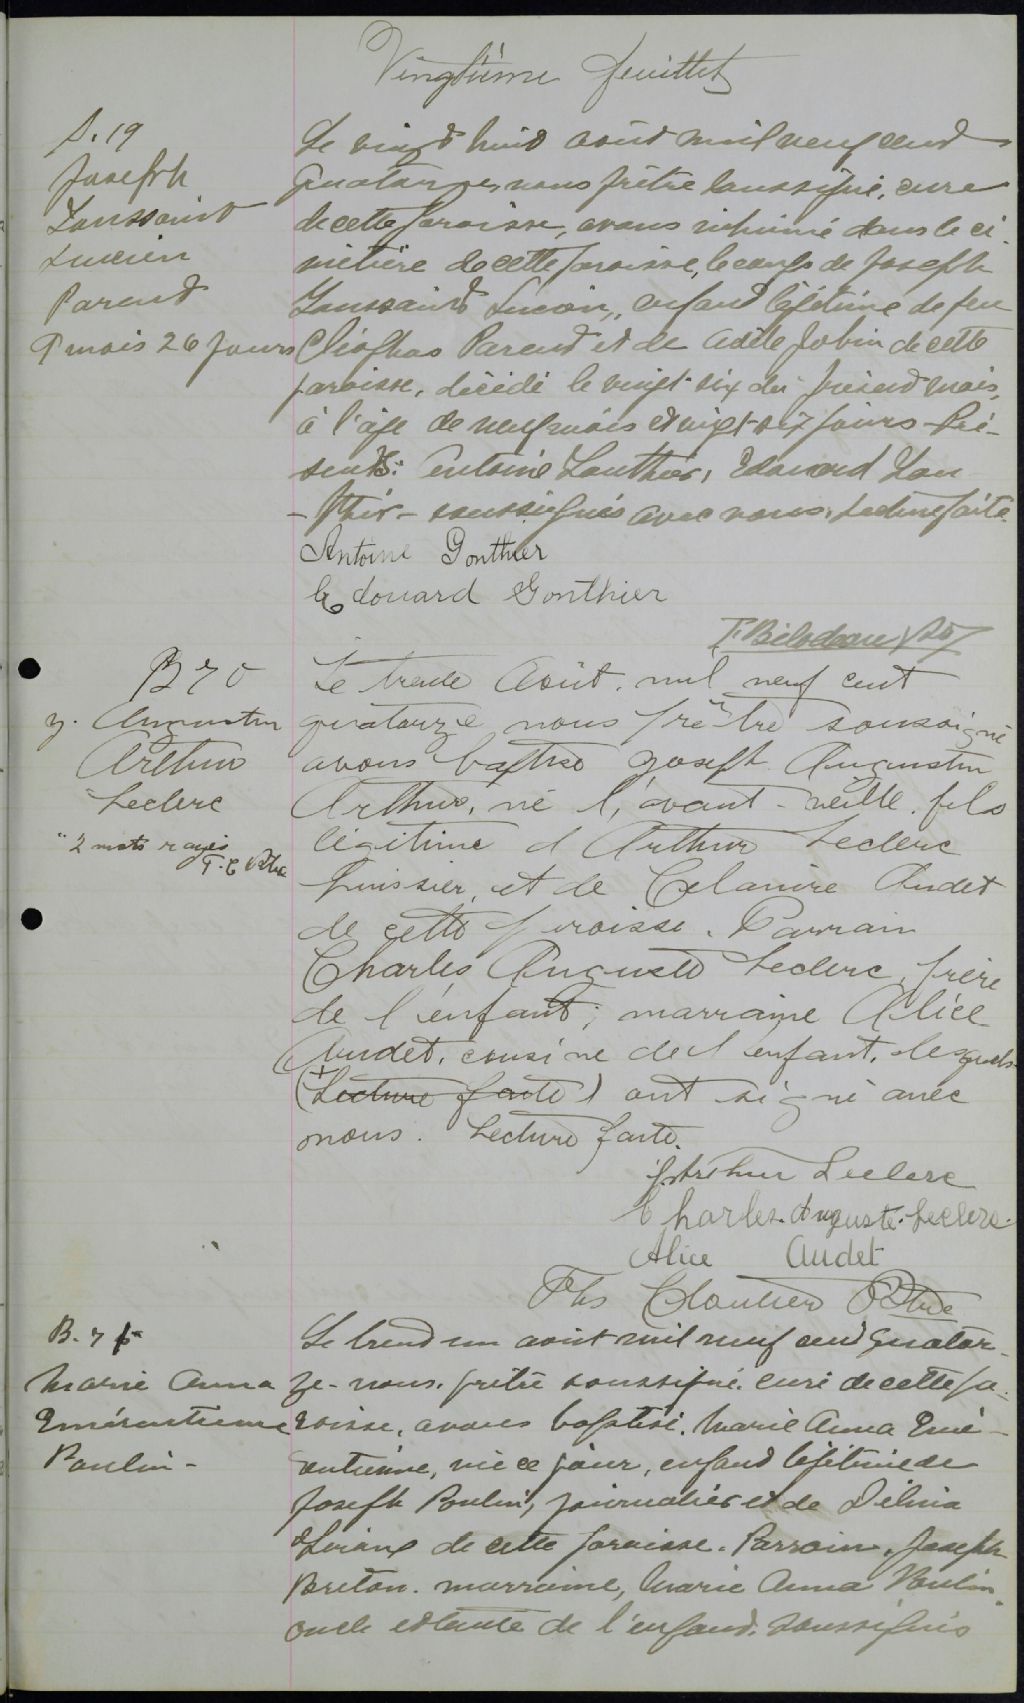 Vingtième feuillet
S. 19
Joseph
Toussaint
Lucien
Parent
9 mois 26 jours
Le vingt huit août mil neuf cent
quatorze, nous prêtre soussigné, curé
de cette paroisse, avons inhumé dans le ci-
metière de cette paroisse, le corps de Joseph
Toussaint Lucien, enfant légitime de feu
Cléophas Parent et de Adèle Jobin de cette
paroisse, décédé le vingt-six du présent mois,
à l'âge de neuf mois et vingt-six jours - Pré-
sents: Antoine Gonthier, Edouard Gon
-thier - soussignés avec nous. Lecture faite.
Antoine Gonthier
Edouard Gonthier
F. Bilodeau Ptre
B 70
J. Augustin
Arthur
Leclerc
"2 mots rayés
T. C Ptre
Le trente Août. mil neuf cent
quatorze nous prêtre soussigné
avons baptisé Joseph Augustin
Arthur, né l'avant-veille, fils
légitime d Arthur Leclerc
huissier et de Celanire Audet
de cette paroisse. Parrain
Charles Auguste Leclerc, frère
de l'enfant; marraine Alice
Audet, cousine de l enfant, lesquels
(Lecture faite) ont signé avec
nous. Lecture faite.
J. Arthur Leclerc
Charles. Auguste. Leclerc.
Alice Audet
Ths Cloutier Ptre
B. 71
Marie Anna
Emérentienne
Poulin -
Le trent un août mil neuf cent quator-
ze - nous, prêtre soussigné, curé de cette pa-
roisse, avons baptisé, Marie Anna Emé-
rentienne, née ce jour, enfant légitime de
Joseph Poulin, journalier et de Délima
de cette paroisse. Parrain, Joseph
Breton. marraine, Marie Anna Poulin,
oncle et tante de l'enfant. soussignés